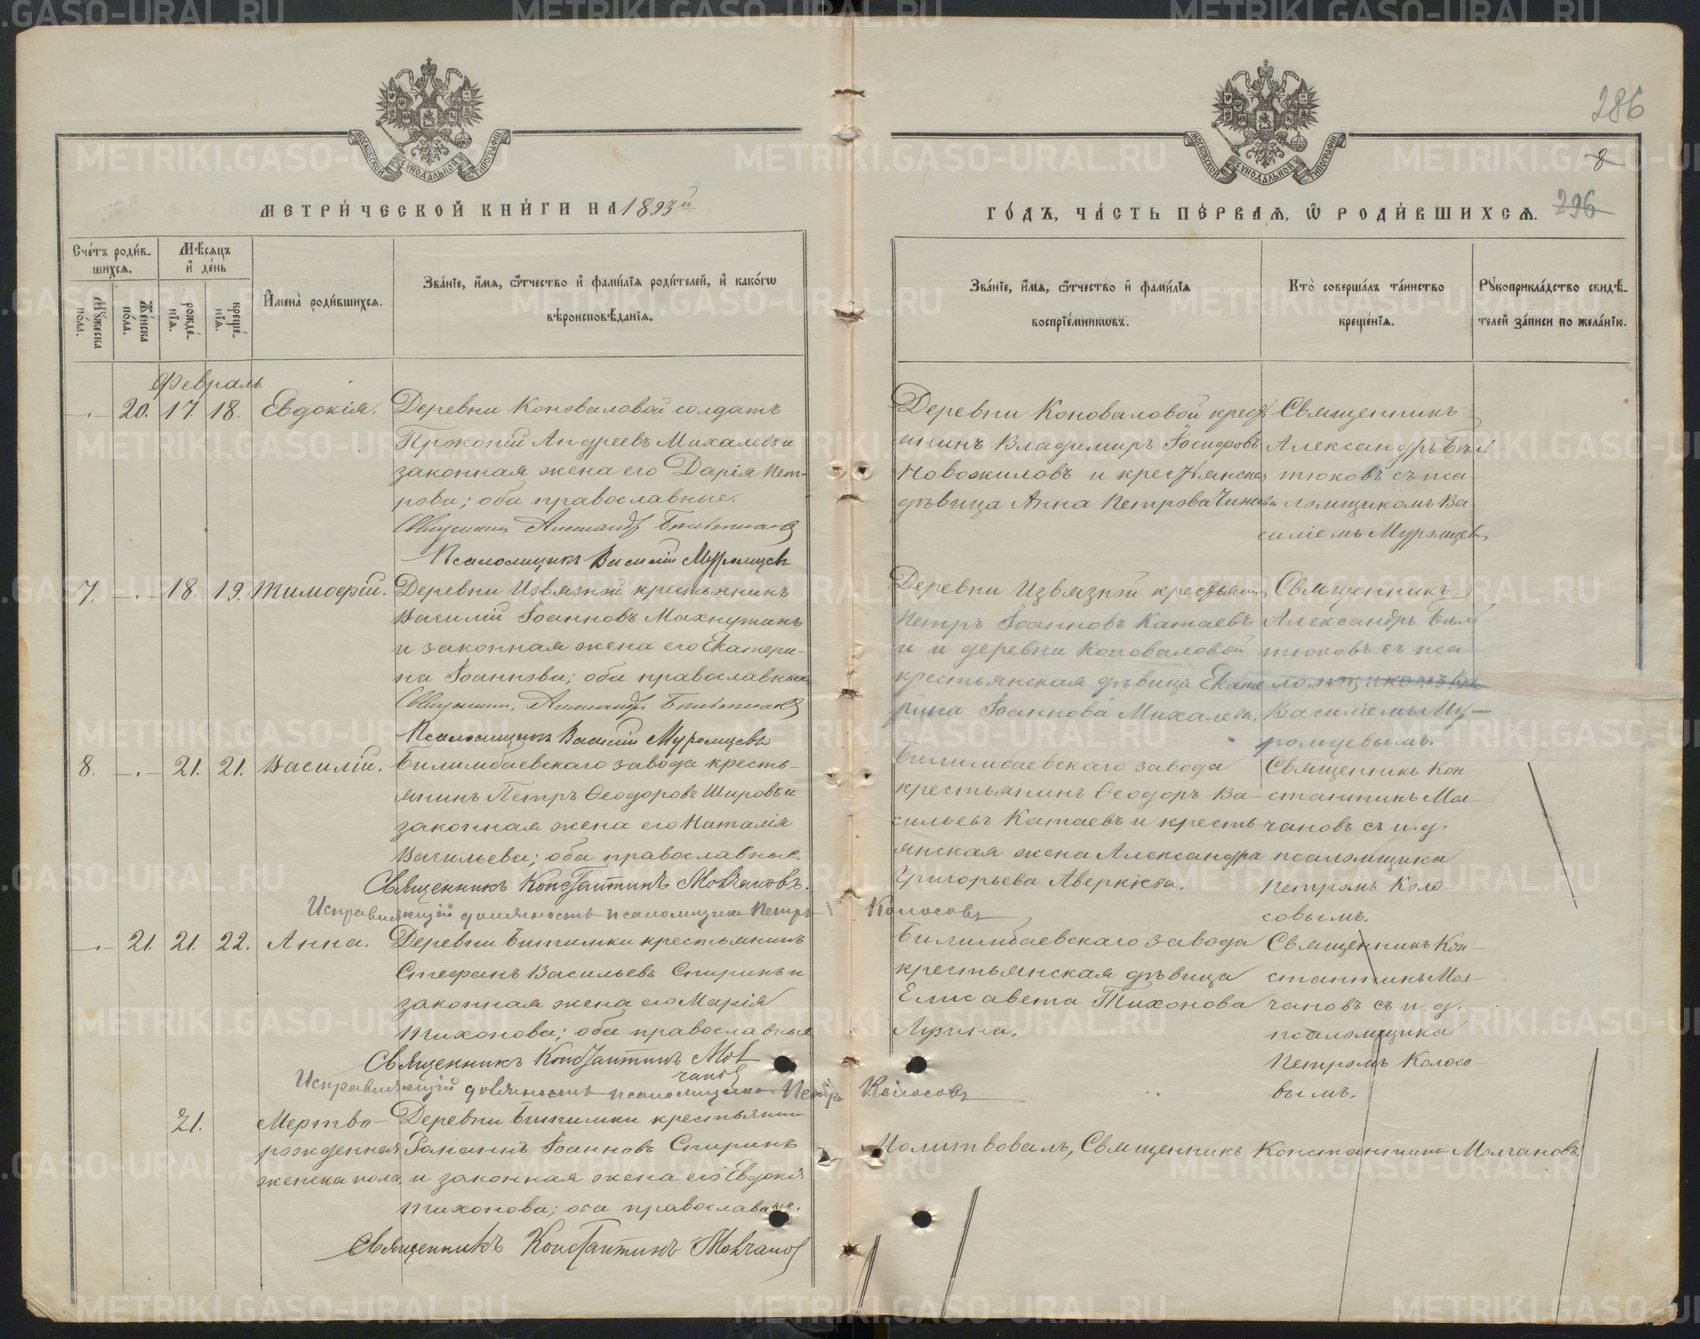 286
8
296
МЕТРИ́ЧЕСКОЙ КНИ́ГИ НА 1893й
ГО́ДЪ, ЧА́СТЬ ПЕ́РВАЯ, Ѡ РОДИ́ВШИХСЯ.
Сче́тъ роди́вшихся.
Му́жеска по́ла.
Же́нска по́ла.
Мѣ́сяцъ и де́нь
рожде́нїя.
креще́нїя.
И́мена̀ роди́вшихся.
Зва́нїе, и́мя, ѻ́тчество и фами́лїя роди́телей, и како́гѡ
вѣроисповѣ́данїя.
Зва́нїе, и́мя, ѻ́тчество и фами́лїя
воспрїе́мникѡвъ.
Кто̀ соверша́лъ та́инство
креще́нїя.
Рукоприкла́дство свидѣ́-
телей за́писи по жела́нїю.
Февраль
20. 17. 18. Евдокія. Деревни Коноваловой солдатъ
Прокопій Андреевъ Михалевъ и
законная жена его Дарія Пет-
рова; оба православные.
Священникъ Александръ
Псаломщикъ Василій Муромцевъ
Деревни Коноваловой крест
янинъ Владимиръ Іосифовъ
Новожиловъ и крестьянская
дѣвица Анна Петрова
Священникъ
Александръ Бѣль
тюковъ съ пса
ломщикомъ Ва
силіемъ Муромцев
7. 18. 19. Тимофій. Деревни Извязной крестьянинъ
Василій Іоанновъ Махнуткинъ
и законная жена его Екатери-
на Іоаннова; оба православные
Священникъ Александръ
Псаломщикъ Василій Муромцевъ
Деревни Извязной крестьянинъ
Петръ Іоанновъ Катаевъ
и и деревни Коноваловой
крестьянская дѣвица Екате
рина Іоаннова Михалева.
Священникъ
Александръ Бѣль
тюковъ съ пса
ломщикомъ Ва
Василіемъ Му-
ромцевымъ.
8. 21. 21. Василій. Билимбаевскаго завода кресть-
янинъ Петръ Ѳеодоровъ Шировъ и
законная жена его Наталія
Васильева; оба православные.
Священникъ Константинъ Молчановъ.
Исправляющій должность псаломщика Петръ Колосовъ
Билимбаевскаго завода
крестьянинъ Ѳеодоръ Ва-
сильевъ Катаевъ и кресть
янская жена Александра
Григорьева Аверкіева.
Священникъ Кон
стантинъ Мол-
чановъ съ и. д.
псаломщика
Петромъ Коло-
совымъ.
21. 21. 22. Анна. Деревни Битимки крестьянинъ
Стефанъ Васильевъ Спиринъ и
законная жена его Марія
Тихонова; оба православные
Священникъ Константинъ Мол
чановъ
Исправляющій должность псаломщика Петръ Колосовъ
Билимбаевскаго завода
крестьянская дѣвица
Елисавета Тихонова
Лузина.
Священникъ Кон-
стантинъ Мол-
чановъ съ и. д.
псаломщика
Петромъ Колосо
вымъ.
21. Мертво-
рожденная
женска пола
Деревни Битимки крестьянинъ
Іоаннъ Іоанновъ Спиринъ
и законная жена его Евдокія
Тихонова; оба православные.
Священникъ Константинъ Молчановъ
Молитвовалъ, Священникъ Константинъ Молчановъ